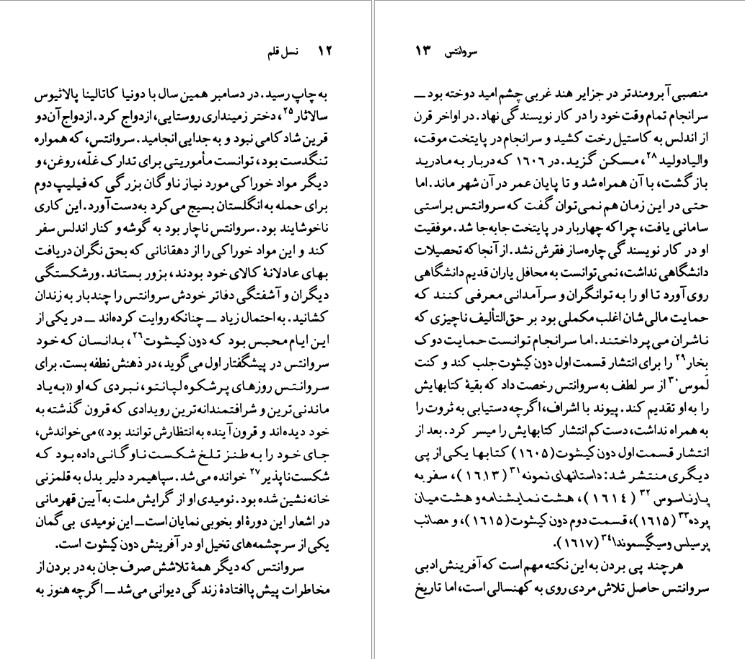 ۱۲ نسل قلم
به چاپ رسید. در دسامبر همین سال با دونیا کاتالینا پالاثیوس
سالاثار۲۵، دختر زمینداری روستایی، ازدواج کرد. ازدواج آن دو
قرین شادکامی نبود و به جدایی انجامید. سروانتس، که همواره
تنگدست بود، توانست مأموریتی برای تدارک غلّه، روغن، و
دیگر مواد خوراکی مورد نیاز ناوگان بزرگی که فیلیپ دوم
برای حمله به انگلستان بسیج می‌کرد به‌دست آورد. این کاری
ناخوشایند بود. سروانتس ناچار بود به گوشه و کنار اندلس سفر
کند و این مواد خوراکی را از دهقانانی که بحق نگران دریافت
بهای عادلانهٔ کالای خود بودند، بزور بستاند. ورشکستگی
دیگران و آشفتگی دفاتر خودش سروانتس را چندبار به زندان
کشانید. به احتمال زیاد ــ چنانکه روایت کرده‌اند ــ در یکی از
این ایام محبس بود که دون کیشوت۲۶، بدانسان که خود
سروانتس در پیشگفتار اول می‌گوید، در ذهنش نطفه بست. برای
سروانتس روزهای پرشکوه لپانتو، نبردی که او «به‌یاد
ماندنی‌ترین و شرافتمندانه‌ترین رویدادی که قرون گذشته به
خود دیده‌اند و قرون آینده به انتظارش توانند بود» می‌خواندش،
جای خود را به طنز تلخ شکست ناوگانی داده بود که
شکست‌ناپذیر۲۷ خوانده می‌شد. سپاهیمرد دلیر بدل به قلمزنی
خانه‌نشین شده بود. نومیدی او از گرایش ملت به آیین قهرمانی
در اشعار این دورهٔ او بخوبی نمایان است ــ این نومیدی بی‌گمان
یکی از سرچشمه‌های تخیل او در آفرینش دون کیشوت است.
سروانتس که دیگر همهٔ تلاشش صرف جان به در بردن از
مخاطرات پیش پاافتادهٔ زندگی دیوانی می‌شد ــ اگرچه هنوز به
سروانتس ۱۳
منصبی آبرومندتر در جزایر هند غربی چشم امید دوخته بود ــ
سرانجام تمام وقت خود را در کار نویسندگی نهاد. در اواخر قرن
از اندلس به کاستیل رخت کشید و سرانجام در پایتخت موقت،
والیادولید۲۸، مسکن گزید. در ۱۶۰۶ که دربار به مادرید
بازگشت، با آن همراه شد و تا پایان عمر در آن شهر ماند. اما
حتی در این زمان هم نمی‌توان گفت که سروانتس براستی
سامانی یافت، چراکه چهاربار در پایتخت جابه‌جا شد. موفقیت
او در کار نویسندگی چاره‌ساز فقرش نشد. از آنجا که تحصیلات
دانشگاهی نداشت، نمی‌توانست به محافل یاران قدیم دانشگاهی
روی آورد تا او را به توانگران و سرآمدانی معرفی کنند که
حمایت مالی‌شان اغلب مکملی بود بر حق‌التألیف ناچیزی که
ناشران می‌پرداختند. اما سرانجام توانست حمایت دوک
بخار۲۹ را برای انتشار قسمت اول دون کیشوت جلب کند و کنت
لموس۳۰ از سر لطف به سروانتس رخصت داد که بقیهٔ کتابهایش
را به او تقدیم کند. پیوند با اشراف، اگرچه دستیابی به ثروت را
به همراه نداشت، دست‌کم انتشار کتابهایش را میسر کرد. بعد از
انتشار قسمت اول دون کیشوت (۱۶۰۵) کتابها یکی از پی
دیگری منتشر شد: داستانهای نمونه۳۱ (۱۶۱۳)، سفر به
پارناسوس۳۲ (۱۶۱۴)، هشت نمایشنامه و هشت میان
پرده۳۳ (۱۶۱۵)، قسمت دوم دون کیشوت (۱۶۱۵)، و مصائب
پرسیلس و سیگیسموندا۳۴ (۱۶۱۷).
هرچند پی بردن به این نکته مهم است که آفرینش ادبی
سروانتس حاصل تلاش مردی روی به کهنسالی است، اما تاریخ